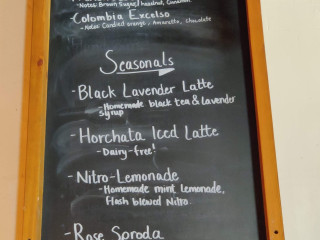 -Notes: Brown Sugar, hazelnut, Cinnamon
-Colombia Excelso
-Notes: Candied orange, Amaretto, chocolate
Seasonals
-Black Lavender Latte
-Homemade black tea & lavender
syrup
-Horchata Iced Latte
-Dairy-free!
-Nitro-Lemonade
-Homemade mint lemonade,
flash brewed Nitro.
-Rose Sproda